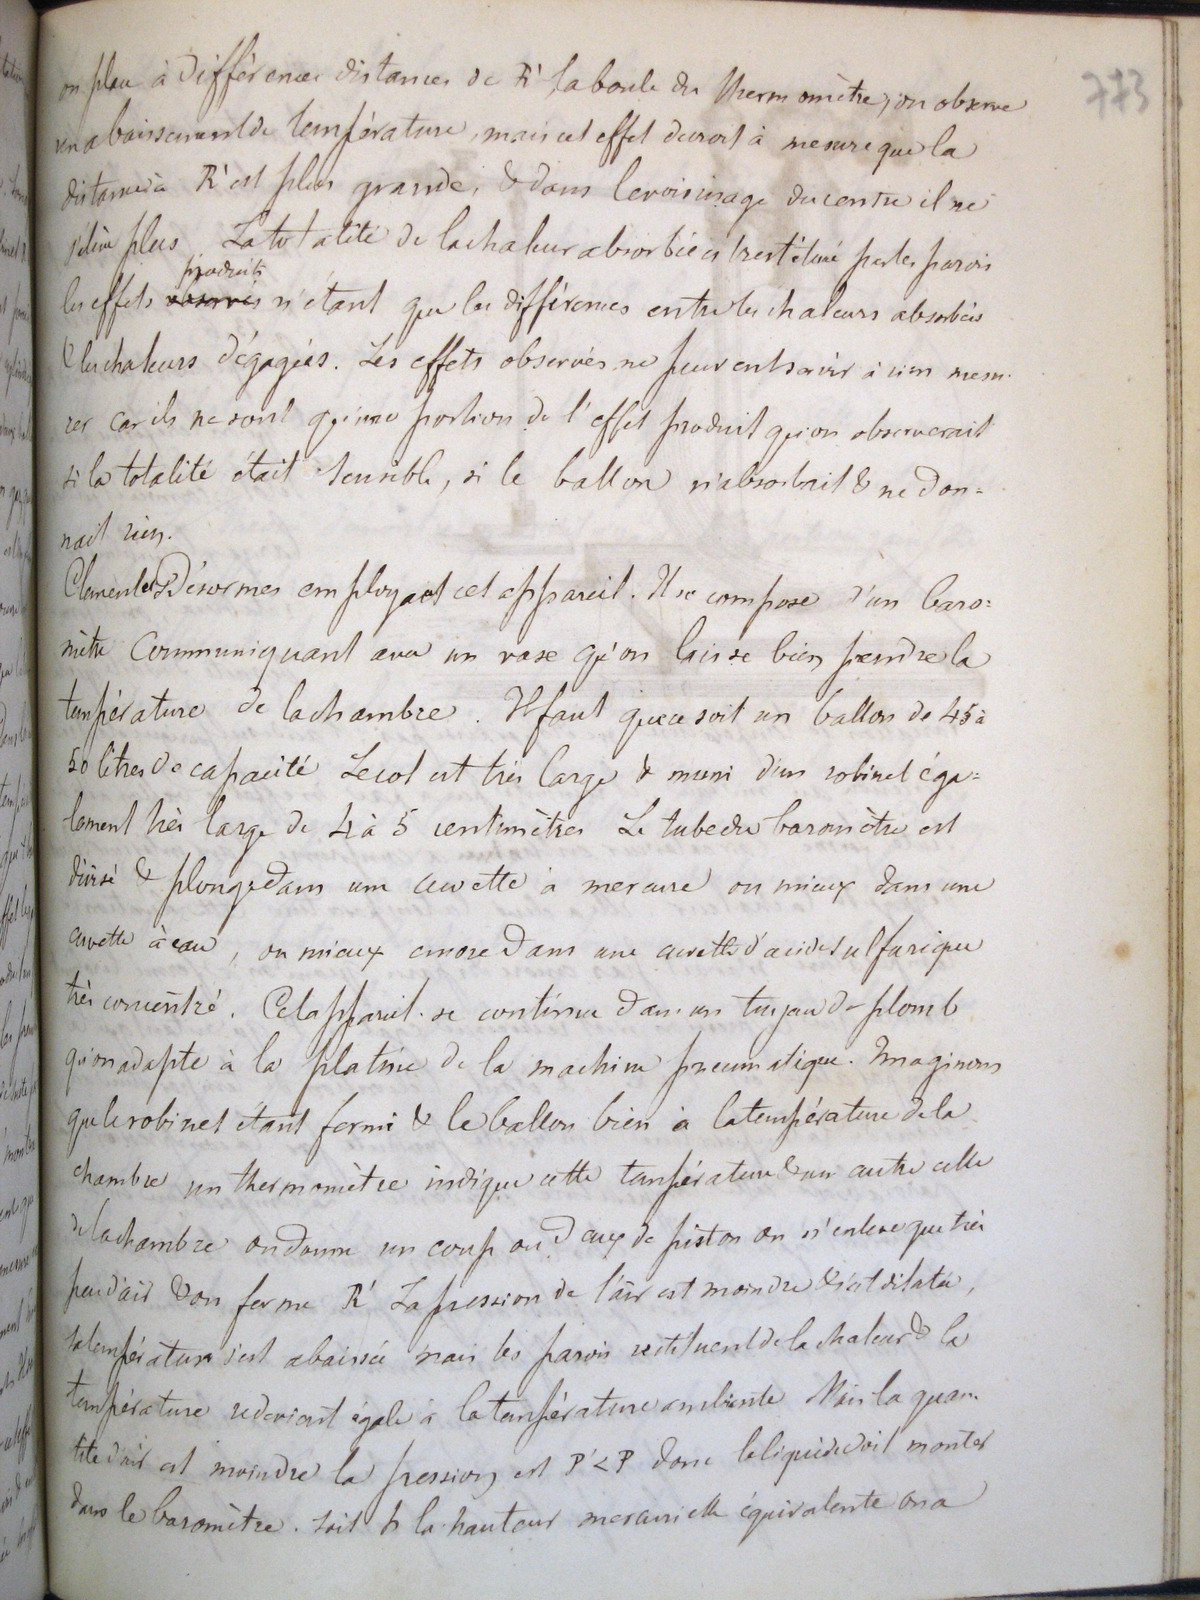 773
on place à différences distances de R' la boule du thermomètre, on observe
un abaissement de température, mais cet effet decroit à mesure que la
distance à R' est plus grande, & dans le voisinage du centre il ne
s'élève plus La totalité de la chaleur absorbée est restituée par les parois
produits
les effets observés n'étant que les différences entre les chaleurs absorbées
& les chaleurs dégagées. Les effets observés ne peuvent servir à rien mesu-
rer car ils ne sont qu'une portion de l'effet produit qu'on observerait
si la totalité était sensible, si le ballon n'absorbait & ne don=
nait rien.
Clement & Désormes employent cet appareil. Il se compose d'un baro=
mètre communiquant avec un vase qu'on laisse bien prendre la
température de la chambre. Il faut que ce soit un ballon de 45 à
50 litres de capacité Le col est très large & muni d'un robinet éga=
lement très large de 4 à 5 centimètres Le tube du baromètre est
divisé & plonge dans une cuvette à mercure ou mieux dans une
cuvette à eau, ou mieux encore dans une cuvette d'acide sulfurique
très concentré. Cet appareil se continue dans un tuyau de plomb
qu'on adapte à la platine de la machine pneumatique. Imaginons
que le robinet étant fermé & le ballon bien à la température de la
chambre un thermomètre indique cette température & un autre celle
de la chambre on donne un coup ou deux de piston on n'enleve que très
peu d'air & on ferme R' La pression de l'air est moindre & s'est dilatée,
sa température s'est abaissée mais les parois restituent de la chaleur & la
température redevient égale à la température ambiante Mais la quan-
tité d'air est moindre la pression est P'<P donc le liquide doit monter
dans le baromètre. Soit h la hauteur mercurielle équivalente on a